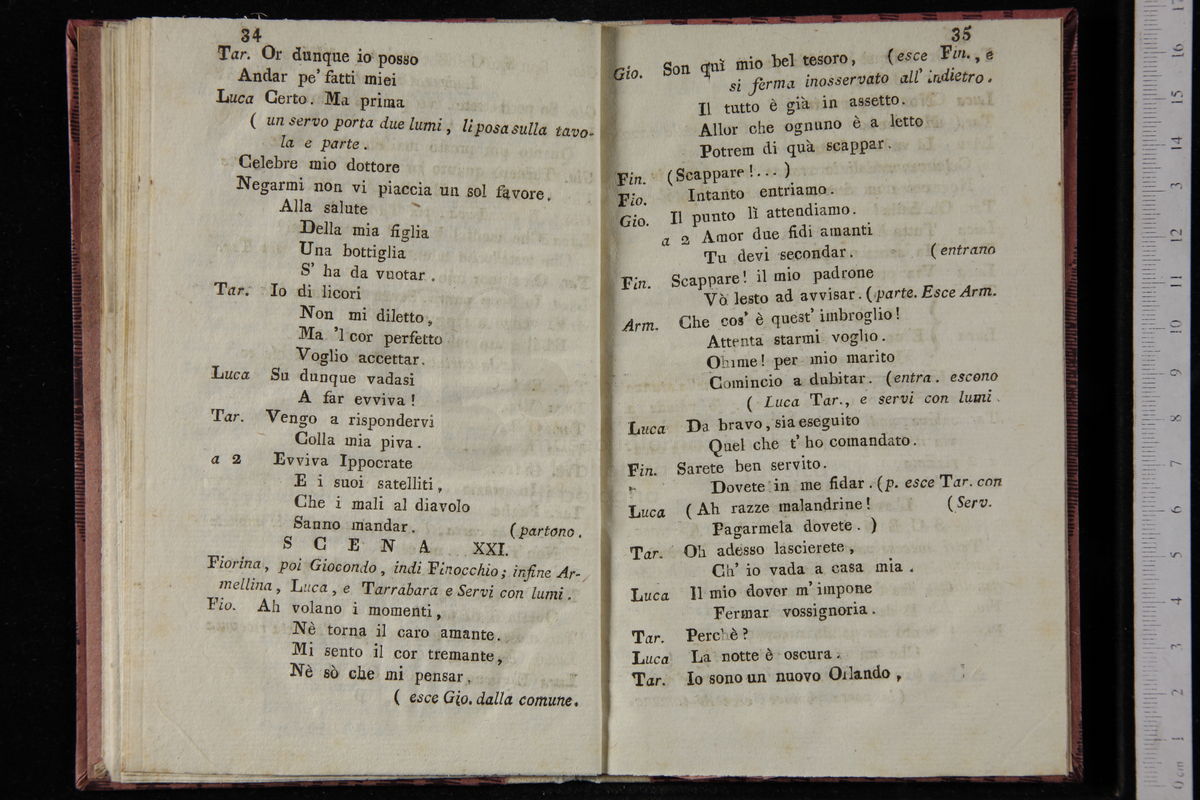 34
Tar. Or dunque io posso
Andar pe' fatti miei
Luca Certo. Ma prima
( un servo porta due lumi, li posa sulla tavo-
la e parte.
Celebre mio dottore
Negarmi non vi piaccia un sol favore.
Alla salute
Della mia figlia
Una bottiglia
S' ha da vuotar.
Tar. Io di licori
Non mi diletto,
Ma 'l cor perfetto
Voglio accettar.
Luca Su dunque vadasi
A far evviva!
Tar. Vengo a rispondervi
Colla mia piva.
a 2 Evviva Ippocrate
E i suoi satelliti,
Che i mali al diavolo
Sanno mandar. (partono.
SCENA XXI.
Fiorina, poi Giocondo, indi Finocchio; infine Ar-
mellina, Luca, e Tarrabara e Servi con lumi.
Fio. Ah volano i momenti,
Nè torna il caro amante.
Mi sento il cor tremante,
Nè sò che mi pensar.
( esce Gio. dalla comune.
35
Gio. Son quì mio bel tesoro, (esce Fin., e
si ferma inosservato all' indietro.
Il tutto è già in assetto.
Allor che ognuno è a letto
Potrem di quà scappar.
Fin. (Scappare!...)
Fio. Intanto entriamo.
Gio. Il punto lì attendiamo.
a 2 Amor due fidi amanti
Tu devi secondar. (entrano
Fin. Scappare! il mio padrone
Vò lesto ad avvisar. (parte. Esce Arm.
Arm. Che cos' è quest' imbroglio!
Attenta starmi voglio.
Ohime! per mio marito
Comincio a dubitar. (entra. escono
( Luca Tar., e servi con lumi.
Luca Da bravo, sia eseguito
Quel che t' ho comandato.
Fin. Sarete ben servito.
Dovete in me fidar. (p. esce Tar. con
Luca (Ah razze malandrine! (Serv.
Pagarmela dovete.)
Tar. Oh adesso lascierete,
Ch' io vada a casa mia.
Luca Il mio dover m' impone
Fermar vossignoria.
Tar. Perchè?
Luca La notte è oscura.
Tar. Io sono un nuovo Orlando,
0 cm 1 2 3 4 5 6 7 8 9 10 11 12 13 14 15 16 17